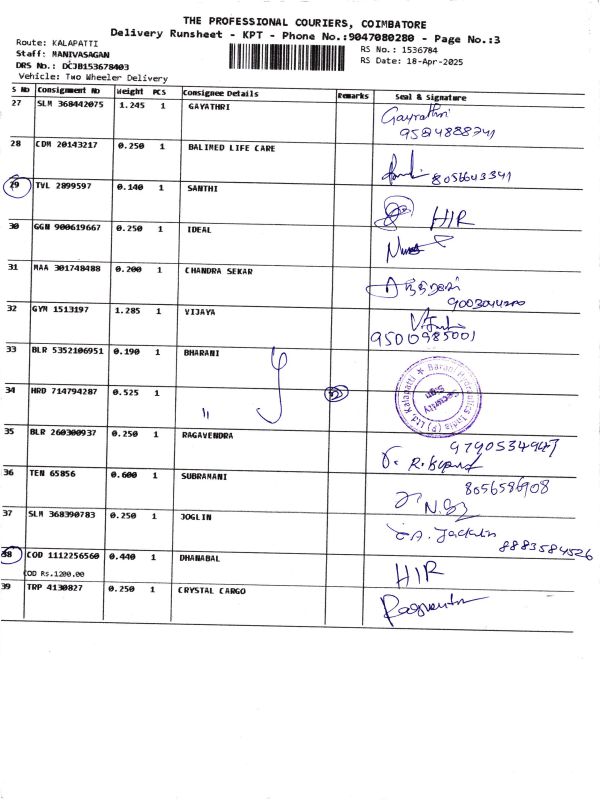 THE PROFESSIONAL COURIERS, COIMBATORE
Delivery Runsheet - KPT - Phone No.:9047080280 - Page No.:3
Route: KALAPATTI
RS No.: 1536784
Staff: MANIVASAGAN
RS Date: 18-Apr-2025
DRS No.: DCJB153678403
Vehicle: Two Wheeler Delivery
S No Consignment No Weight PCS Consignee Details Remarks Seal & Signature
27 SLM 368442075 1.245 1 GAYATHRI Gayathri
9524888241
28 CDM 20143217 0.250 1 BALIMED LIFE CARE
8056643341
29 TVL 2899597 0.140 1 SANTHI HIR
30 GGN 900619667 0.250 1 IDEAL
31 MAA 301748488 0.200 1 CHANDRA SEKAR
9003044200
32 GYM 1513197 1.285 1 VIJAYA
9500985001
33 BLR 5352106951 0.190 1 BHARANI
34 HRD 714794287 0.525 1 "
Barani Hydraulics India (P) Ltd. Kalapatti
Security
Sign
35 BLR 260300937 0.250 1 RAGAVENDRA 9790534947
36 TEN 65856 0.600 1 SUBRAMANI 8056586908
37 SLM 368390783 0.250 1 JOGLIN
8883584526
38 COD 1112256560 0.440 1 DHANABAL HIR
COD Rs.1200.00
39 TRP 4130827 0.250 1 CRYSTAL CARGO